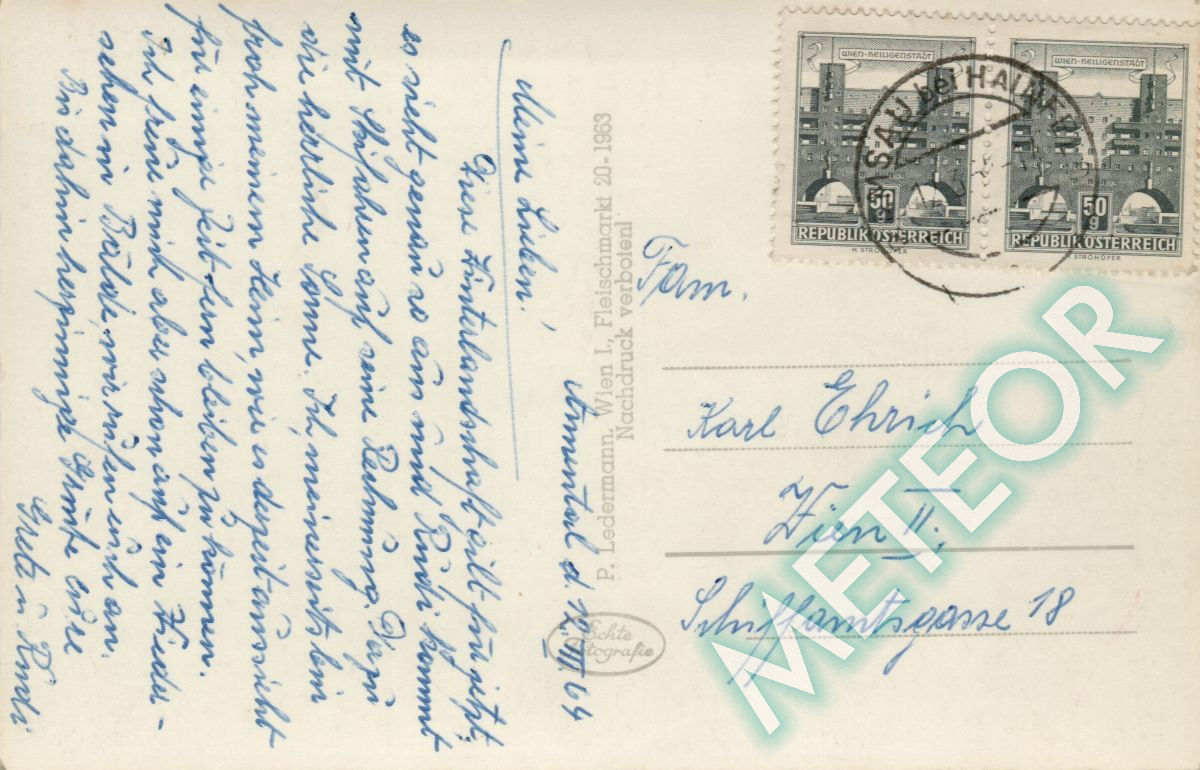 Unterental d. 12.III.64
Meine Lieben!
Diese Winterlandschaft gilt für jetzt,
es sieht genau so aus und Rudi kommt
mit Skifahren auf seine Rechnung. Dazu
die herrliche Sonne. Ich meinerseits bin
froh meinem Heim, wie es derzeit aussieht
für einige Zeit fern bleiben zu können.
Ich freue mich aber schon auf ein Wieder-
sehen in Bälde, wir rufen euch an.
Bis dahin herzinnige Grüße eure
Greta u Rudi
P. Ledermann, Wien I., Fleischmarkt 20-1963
Nachdruck verboten!
Echte
Fotografie
WIEN-HEILIGENSTADT
50
g
REPUBLIK ÖSTERREICH
H. STROHOFER
WIEN-HEILIGENSTADT
50
g
REPUBLIK ÖSTERREICH
H. STROHOFER
RAMSAU bei HAINFELD
Fam.
Karl Ehrich
Wien II.
Schiffamtsgasse 18
METEOR